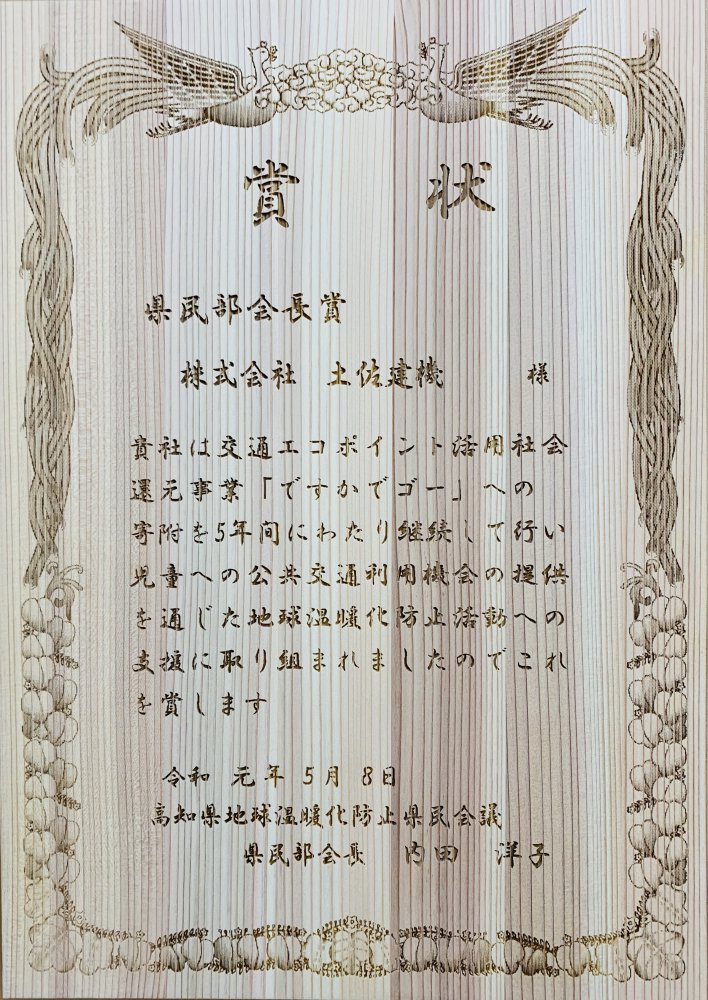 賞状
県民部会長賞
株式会社 土佐建機 様
貴社は交通エコポイント活用社会
還元事業「ですかでゴー」への
寄附を5年間にわたり継続して行い
児童への公共交通利用機会の提供
を通じた地球温暖化防止活動への
支援に取り組まれましたのでこれ
を賞します
令和 元年 5月 8日
高知県地球温暖化防止県民会議
県民部会長 内田 洋子